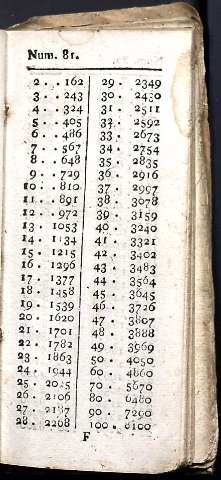 Num. 81.
2 . . 162
3 . . 243
4 . . 324
5 . . 405
6 . . 486
7 . . 567
8 . . 648
9 . . 729
10 . . 810
11 . . 891
12 . . 972
13 . 1053
14 . 1134
15 . 1215
16 . 1296
17 . 1377
18 . 1458
19 . 1539
20 . 1620
21 . 1701
22 . 1782
23 . 1863
24 . 1944
25 . 2025
26 . 2106
27 . 2187
28 . 2268
29 . 2349
30 . 2430
31 . 2511
32 . 2592
33 . 2673
34 . 2754
35 . 2835
36 . 2916
37 . 2997
38 . 3078
39 . 3159
40 . 3240
41 . 3321
42 . 3402
43 . 3483
44 . 3564
45 . 3645
46 . 3726
47 . 3807
48 . 3888
49 . 3969
50 . 4050
60 . 4860
70 . 5670
80 . 6480
90 . 7290
100 . 8100
F